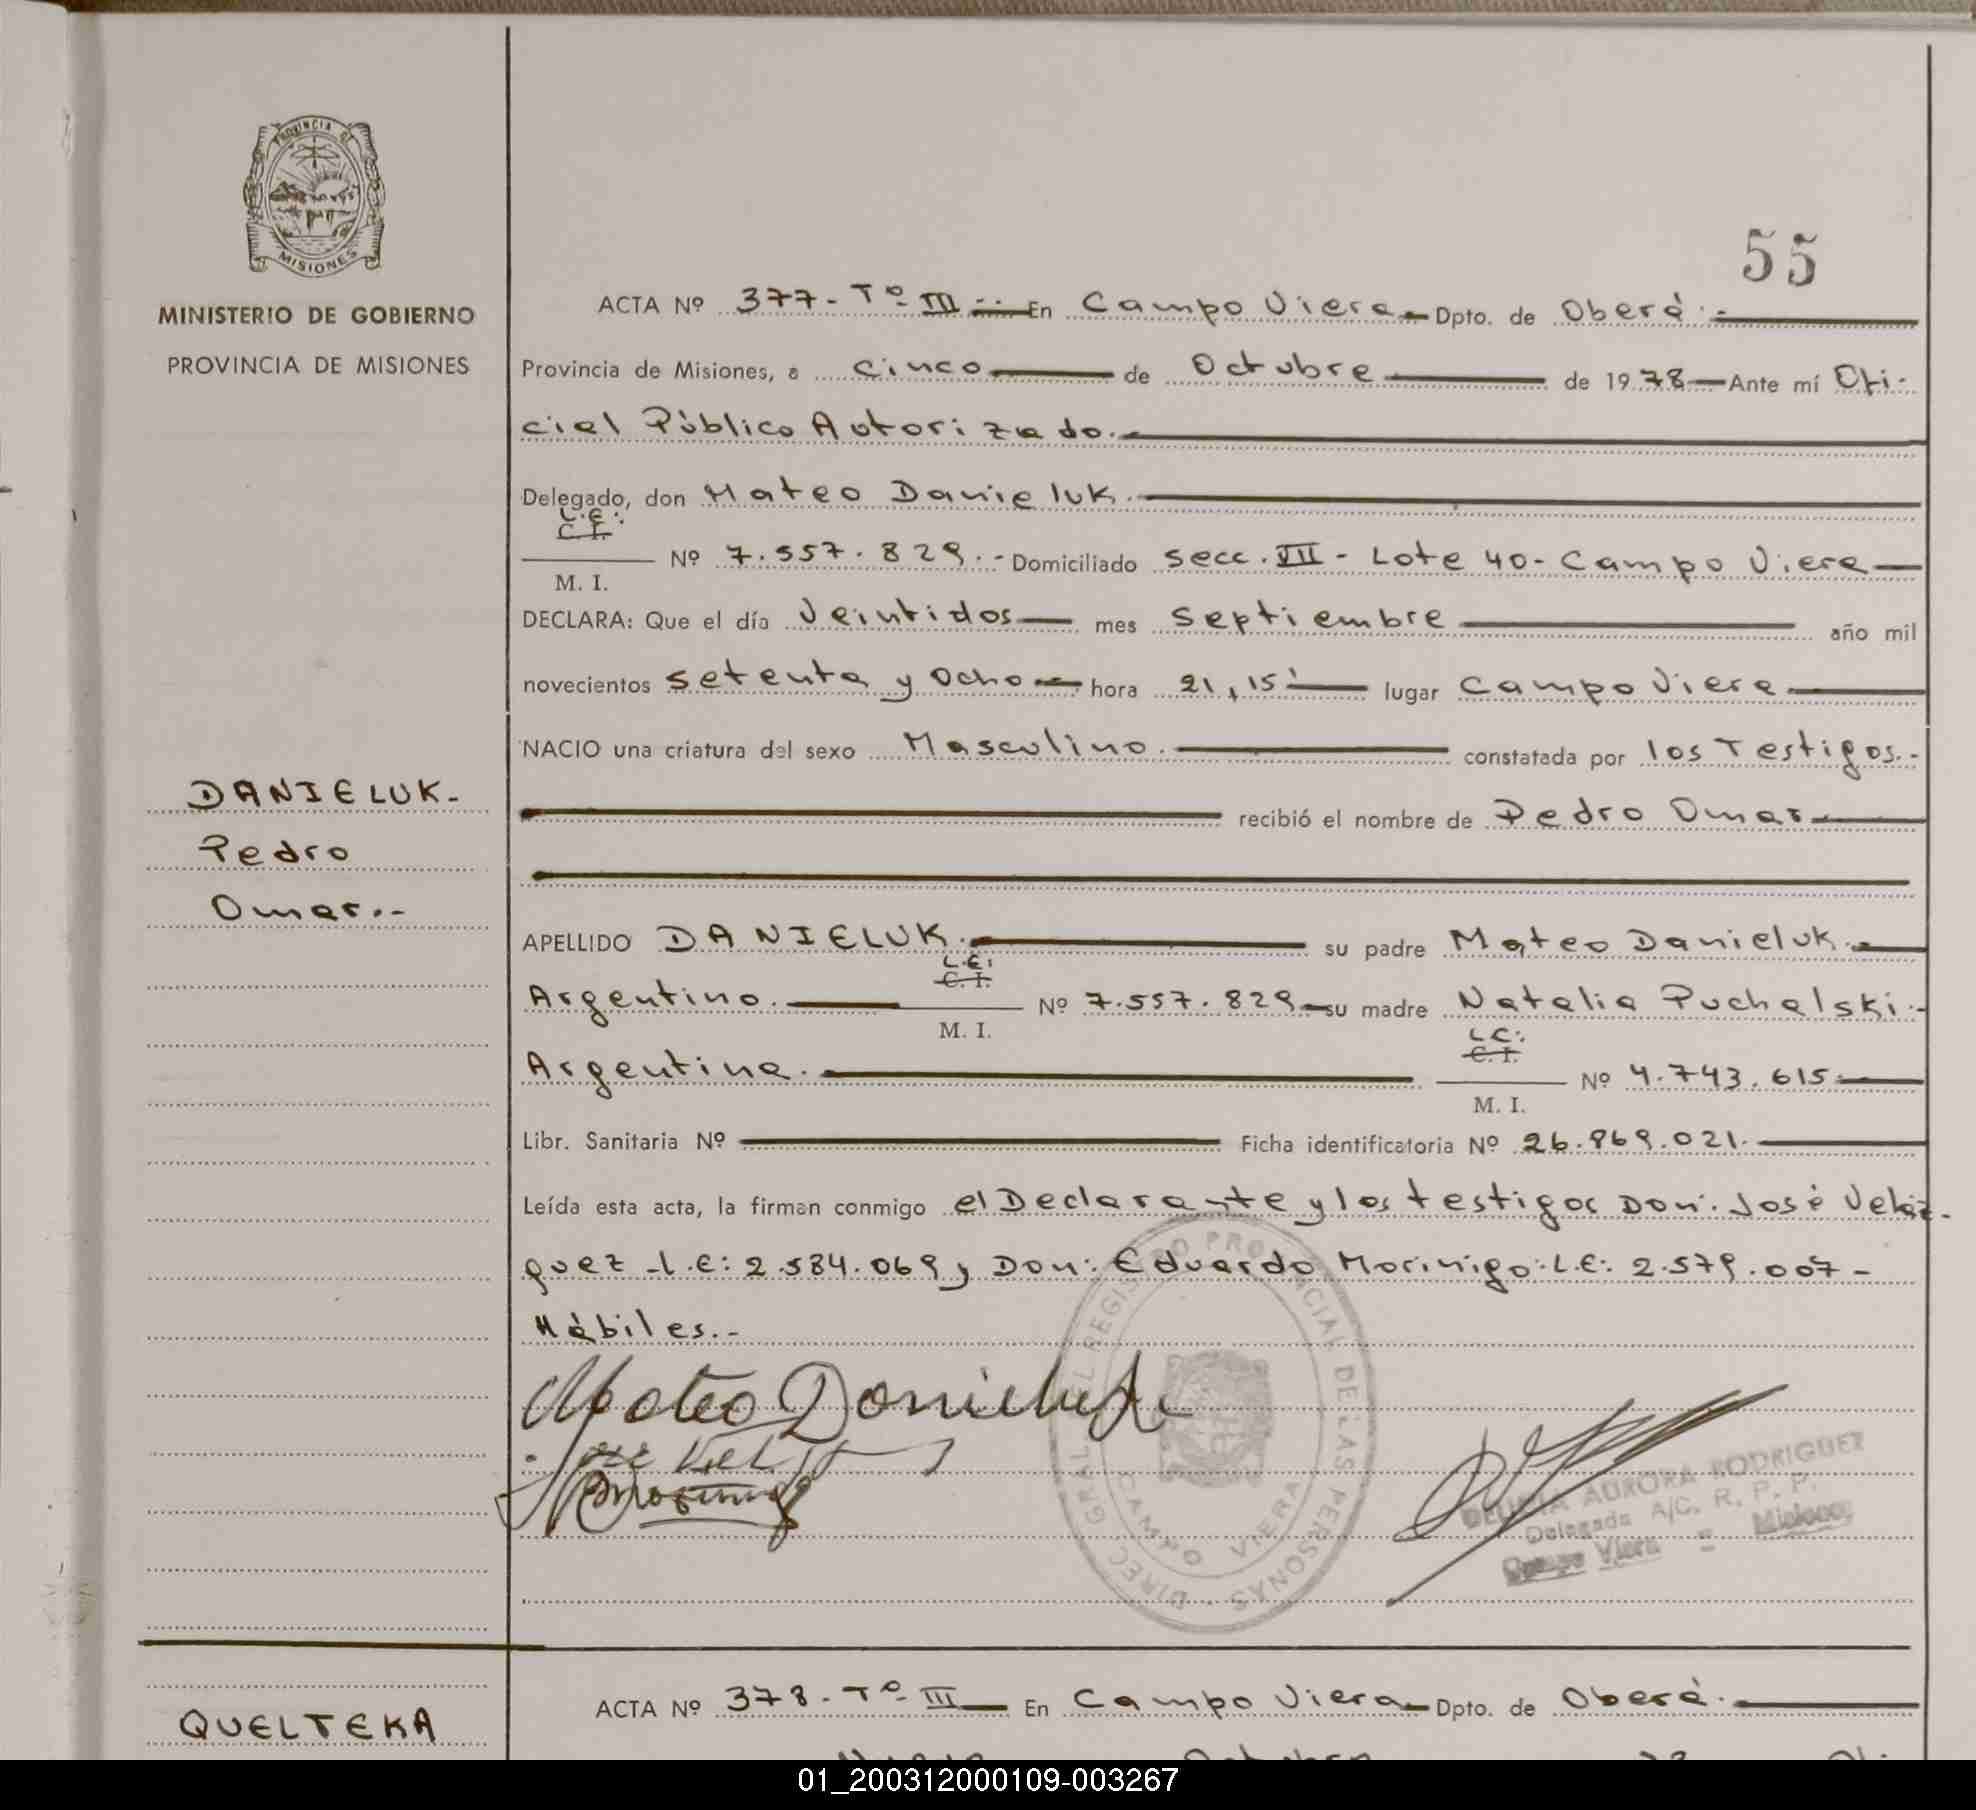 PROVINCIA DE
MISIONES
MINISTERIO DE GOBIERNO
PROVINCIA DE MISIONES
55
ACTA Nº 377- Tº III En Campo Viera Dpto. de Oberá.-
Provincia de Misiones, a cinco de Octubre de 1978 Ante mí Ofi-
cial Público Autorizado.-
Delegado, don Mateo Danieluk.-
L.E:
C. I.
M. I.
Nº 7.557.829.- Domiciliado Secc. VII - Lote 40- Campo Viera
DECLARA: Que el día Veintidos mes Septiembre año mil
novecientos setenta y Ocho hora 21,15' lugar Campo Viera
NACIO una criatura del sexo Masculino. constatada por los Testigos.-
recibió el nombre de Pedro Omar
DANIELUK-
Pedro
Omar.-
APELLIDO DANIELUK.- su padre Mateo Danieluk.-
L.E:
C. I.
M. I.
Argentino. Nº 7.557.829 su madre Natalia Puchalski.-
L.C:
C. I.
M. I.
Argentina. Nº 4.743.615
Libr. Sanitaria Nº Ficha identificatoria Nº 26.869.021.
Leída esta acta, la firman conmigo el Declarante y los testigos Don: José Veláz-
quez -L.E: 2.584.069 y Don: Eduardo Morinigo: L.E: 2.579.007-
Hábiles.-
Mateo Danieluk
DIREC. GRAL. DEL REGISTRO PROVINCIAL DE LAS PERSONAS
CAMPO VIERA
AURORA RODRIGUEZ
Delegada A/C. R. P. P.
Campo Viera - Misiones
QUELTEKA
ACTA Nº 378- Tº III En Campo Viera Dpto. de Oberá.
01_200312000109-003267